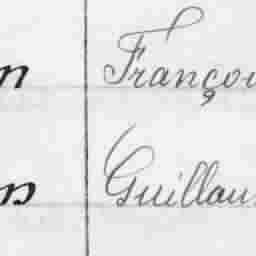 n Françoi
n Guillau